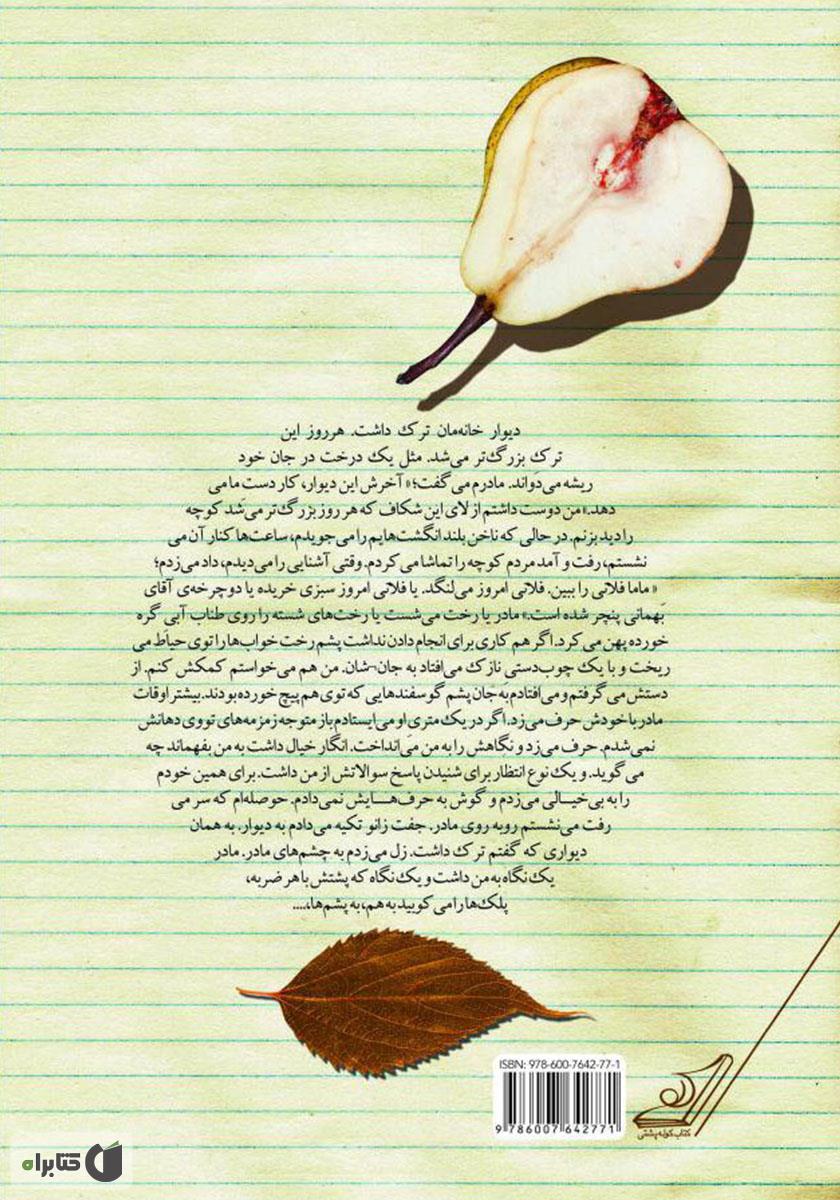 دیوار خانه‌مان ترک داشت. هرروز این
ترک بزرگ‌تر می‌شد. مثل یک درخت در جان خود
ریشه می‌دَواند. مادرم می‌گفت؛« آخرش این دیوار، کار دست ما می
دهد.» من دوست داشتم از لای این شکاف که هر روز بزرگ‌تر می‌شَد کوچه
را دید بزنم. در حالی که ناخن بلند انگشت‌هایم را می‌جویدم، ساعت‌ها کنار آن می
نشستم، رفت و آمد مردم کوچه را تماشا می‌کردم. وقتی آشنایی را می‌دیدم، داد می‌زدم؛
« ماما فلانی را ببین. فلانی امروز می‌لنگد. یا فلانی امروز سبزی خریده یا دوچرخه‌ی آقای
بَهمانی پنچر شده است.» مادر یا رخت می‌شست یا رخت‌های شسته را روی طناب آبی گره
خورده پهن می‌کرد. اگر هم کاری برای انجام دادن نداشت پشم رخت خواب‌ها را توی حیاط می
ریخت و با یک چوب‌دستی نازک می‌افتاد به جان¬شان. من هم می‌خواستم کمکش کنم. از
دستش می‌گرفتم و می‌افتادم به جان پشم گوسفندهایی که توی هم پیچ خورده بودند. بیشتر اوقات
مادر با خودش حرف می‌زد. اگر در یک متری او می‌ایستادم باز متوجه زمزمه‌های تووی دهانش
نمی‌شدم. حرف می‌زد و نگاهش را به من می‌انداخت. انگار خیال داشت به من بفهماند چه
می‌گوید. و یک نوع انتظار برای شنیدن پاسخ سوالاتش از من داشت. برای همین خودم
را به بی‌خیـالی می‌زدم و گوش به حرف‌هـایش نمی‌دادم. حوصله‌ام که سر می
رفت می‌نشستم روبه روی مادر. جفت زانو تکیه می‌دادم به دیوار. به همان
دیواری که گفتم ترک داشت. زل می‌زدم به چشم‌های مادر. مادر
یک نگاه به من داشت و یک نگاه که پشتش با هر ضربه،
پلک‌ها را می کوبید به هم، به پشم‌ها،....
ISBN: 978-600-7642-77-1
9 786007 642771
کتاب کوله پشتی
کتابراه